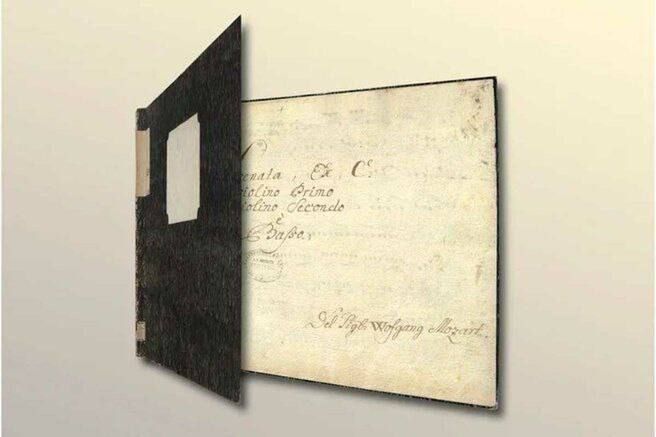 renata, Ex C
iolino Primo
iolino Secondo
è
Basso.
Del Sigr. Wofgang Mozart.